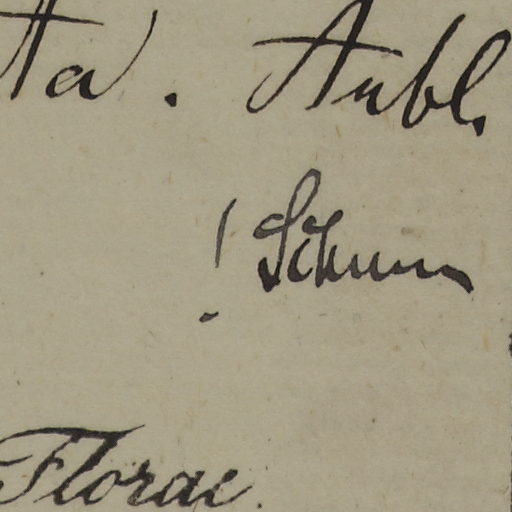 ta. Aubl.
! Schum
Florae